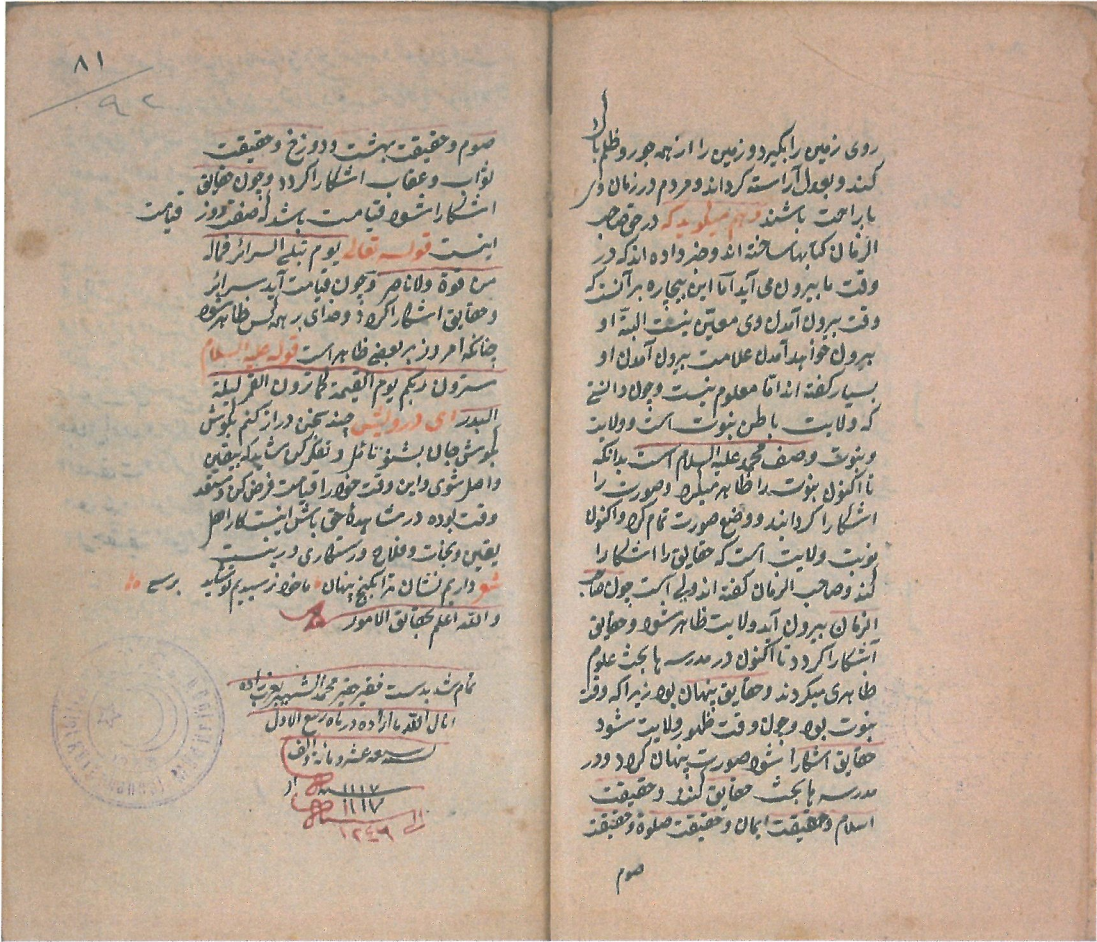 روی زمین را بگیرد و زمین را از همه جور و ظلم پاک
کند و بعدل آراسته گرداند و مردم در زمان وی
با راحت باشند وهم میگوید که در حق صاحب
الزمان کتابها ساخته اند و خبر داده اند که در
وقت ما بیرون می آید اما این بیچاره بر آنست که
وقت بیرون آمدن وی معین نیست البته او
بیرون خواهد آمدن علامت بیرون آمدن او
بسیار گفته اند اما معلوم نیست و چون دانستی
که ولایت باطن نبوت است و ولایت
و نبوت وصف محمد علیه السلام است بدانکه
تا اکنون نبوت را ظاهر میکرد و صورت را
اشکارا گردانند و وضع صورت تمام کرد و اکنون
نوبت ولایت است که حقایق را اشکارا
کند و صاحب الزمان گفته اند ولی است چون صاحب
الزمان بیرون آید ولایت ظاهر شود و حقایق
آشکارا کردد تا اکنون در مدرسه ها بحث علوم
ظاهری میکردند و حقایق پنهان بود زیرا که وقت
نبوت بود و چون وقت ظهور ولایت شود
حقایق اشکارا شود صورت پنهان کردد و در
مدرسه ها بحث حقایق کنند و حقیقت
اسلام و حقیقت ایمان و حقیقت صلوة و حقیقت
صوم
۸۱
۹۲
صوم و حقیقت بهشت و دوزخ و حقیقت
ثواب و عقاب اشکارا کردد و چون حقایق
اشکارا شود قیامت باشد که صفت روز قیامت
اینست قوله تعالی یوم تبلی السرائر فماله
من قوة ولا ناصر و چون قیامت آید سرائر
و حقایق اشکارا کردد و خدای بر همه کس ظاهر شود
چنانکه امروز بر بعضی ظاهر است قوله علیه السلام
سترون ربکم یوم القیمة کما ترون القمر لیلة
البدر ای درویش چند سخن دراز کنم بگوش
بگوش جان بشنو تامل و تفکر کن شاید که بیقین
واصل شوی و این وقت خود را قیامت فرض کن و مستعد
وقت بوده در مشاهدۀ حق باش اینست کار اهل
یقین و نجات و فلاح و رستکاری درینست
شعر داریم نشان ترا بگنج پنهان ما خود نرسیدیم تو شاید برسی
والله اعلم بحقائق الامور
تمام شد بدست فقیر حقیر محمد الشهیر بعرب زاده
انال الله ما اراده در ماه ربیع الاول
سنه سبعه عشر و مائة و الف
سنه ۱۱۱۷ از
۱۱۱۷
الی
۱۲۴۶